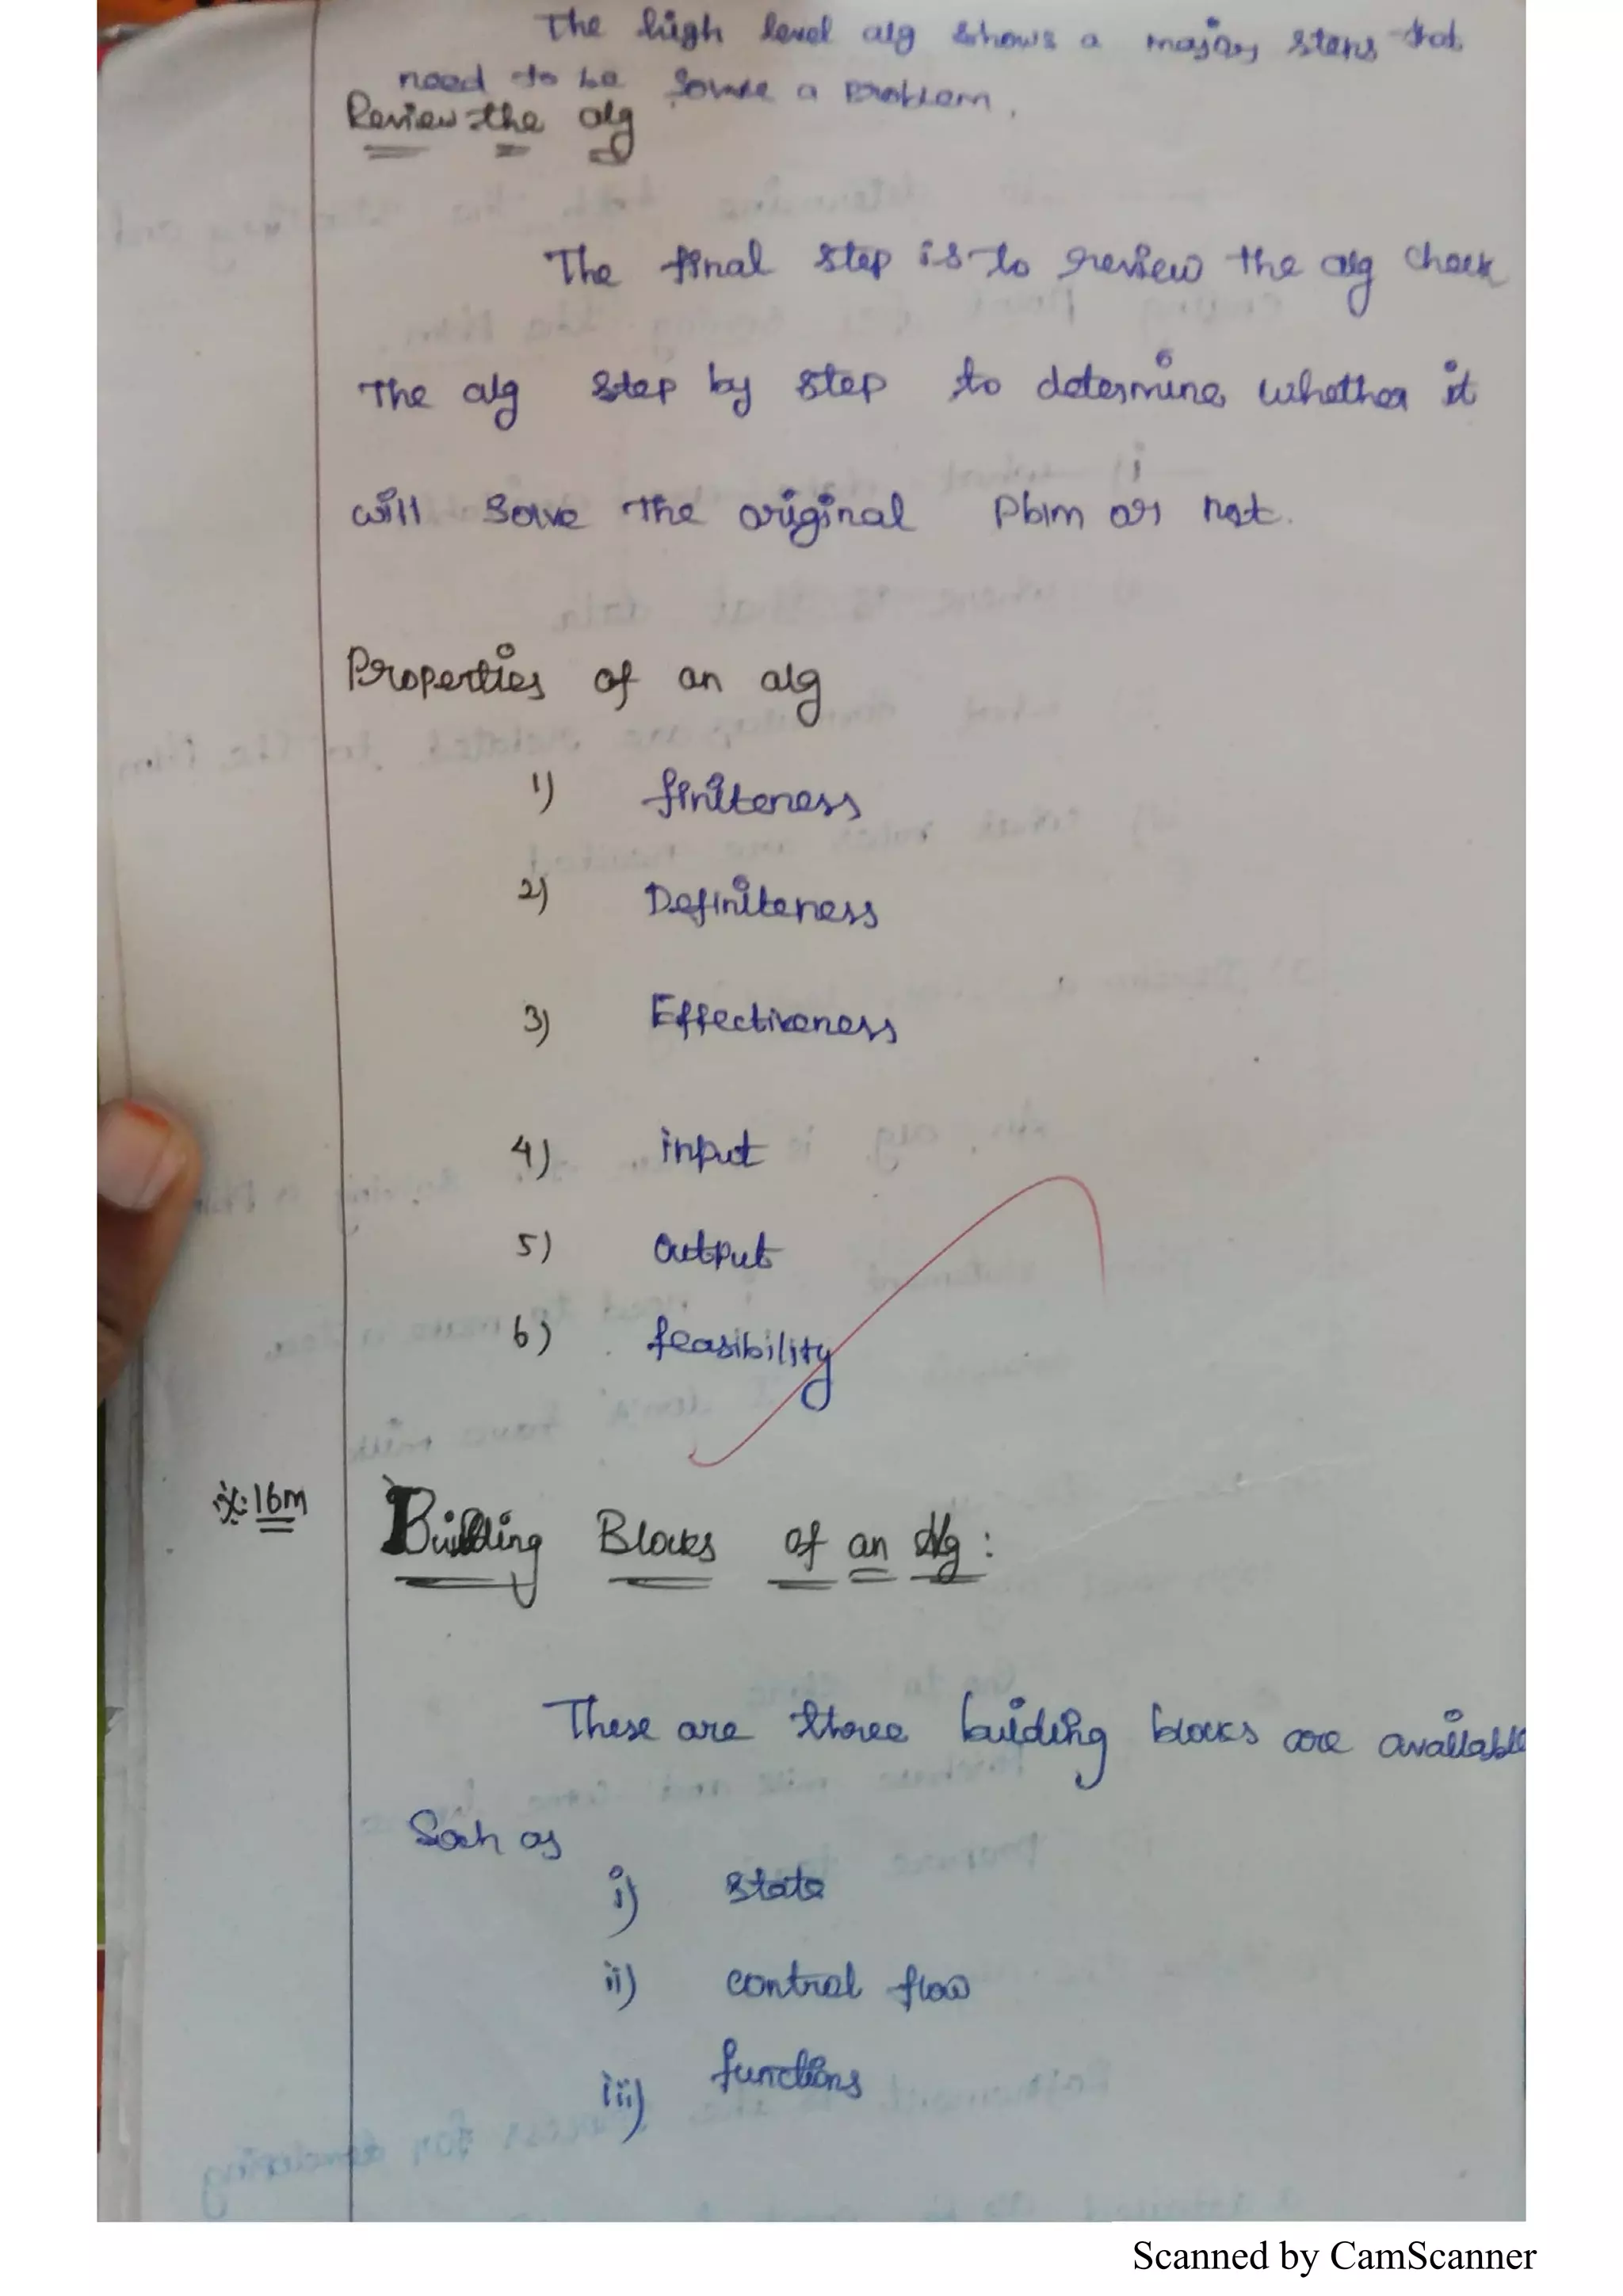 The high level alg shows a major steps that
need to be solve a problem.
Review the alg
The final step is to review the alg check
The alg step by step to determine whether it
will solve the original Pblm or not.
Properties of an alg
1) finiteness
2) Definiteness
3) Effectiveness
4) input
5) output
6) feasibility
16m
Building Blocks of an Alg:
These are three building blocks are available
Such as
i) state
ii) control flow
iii) functions
Scanned by CamScanner